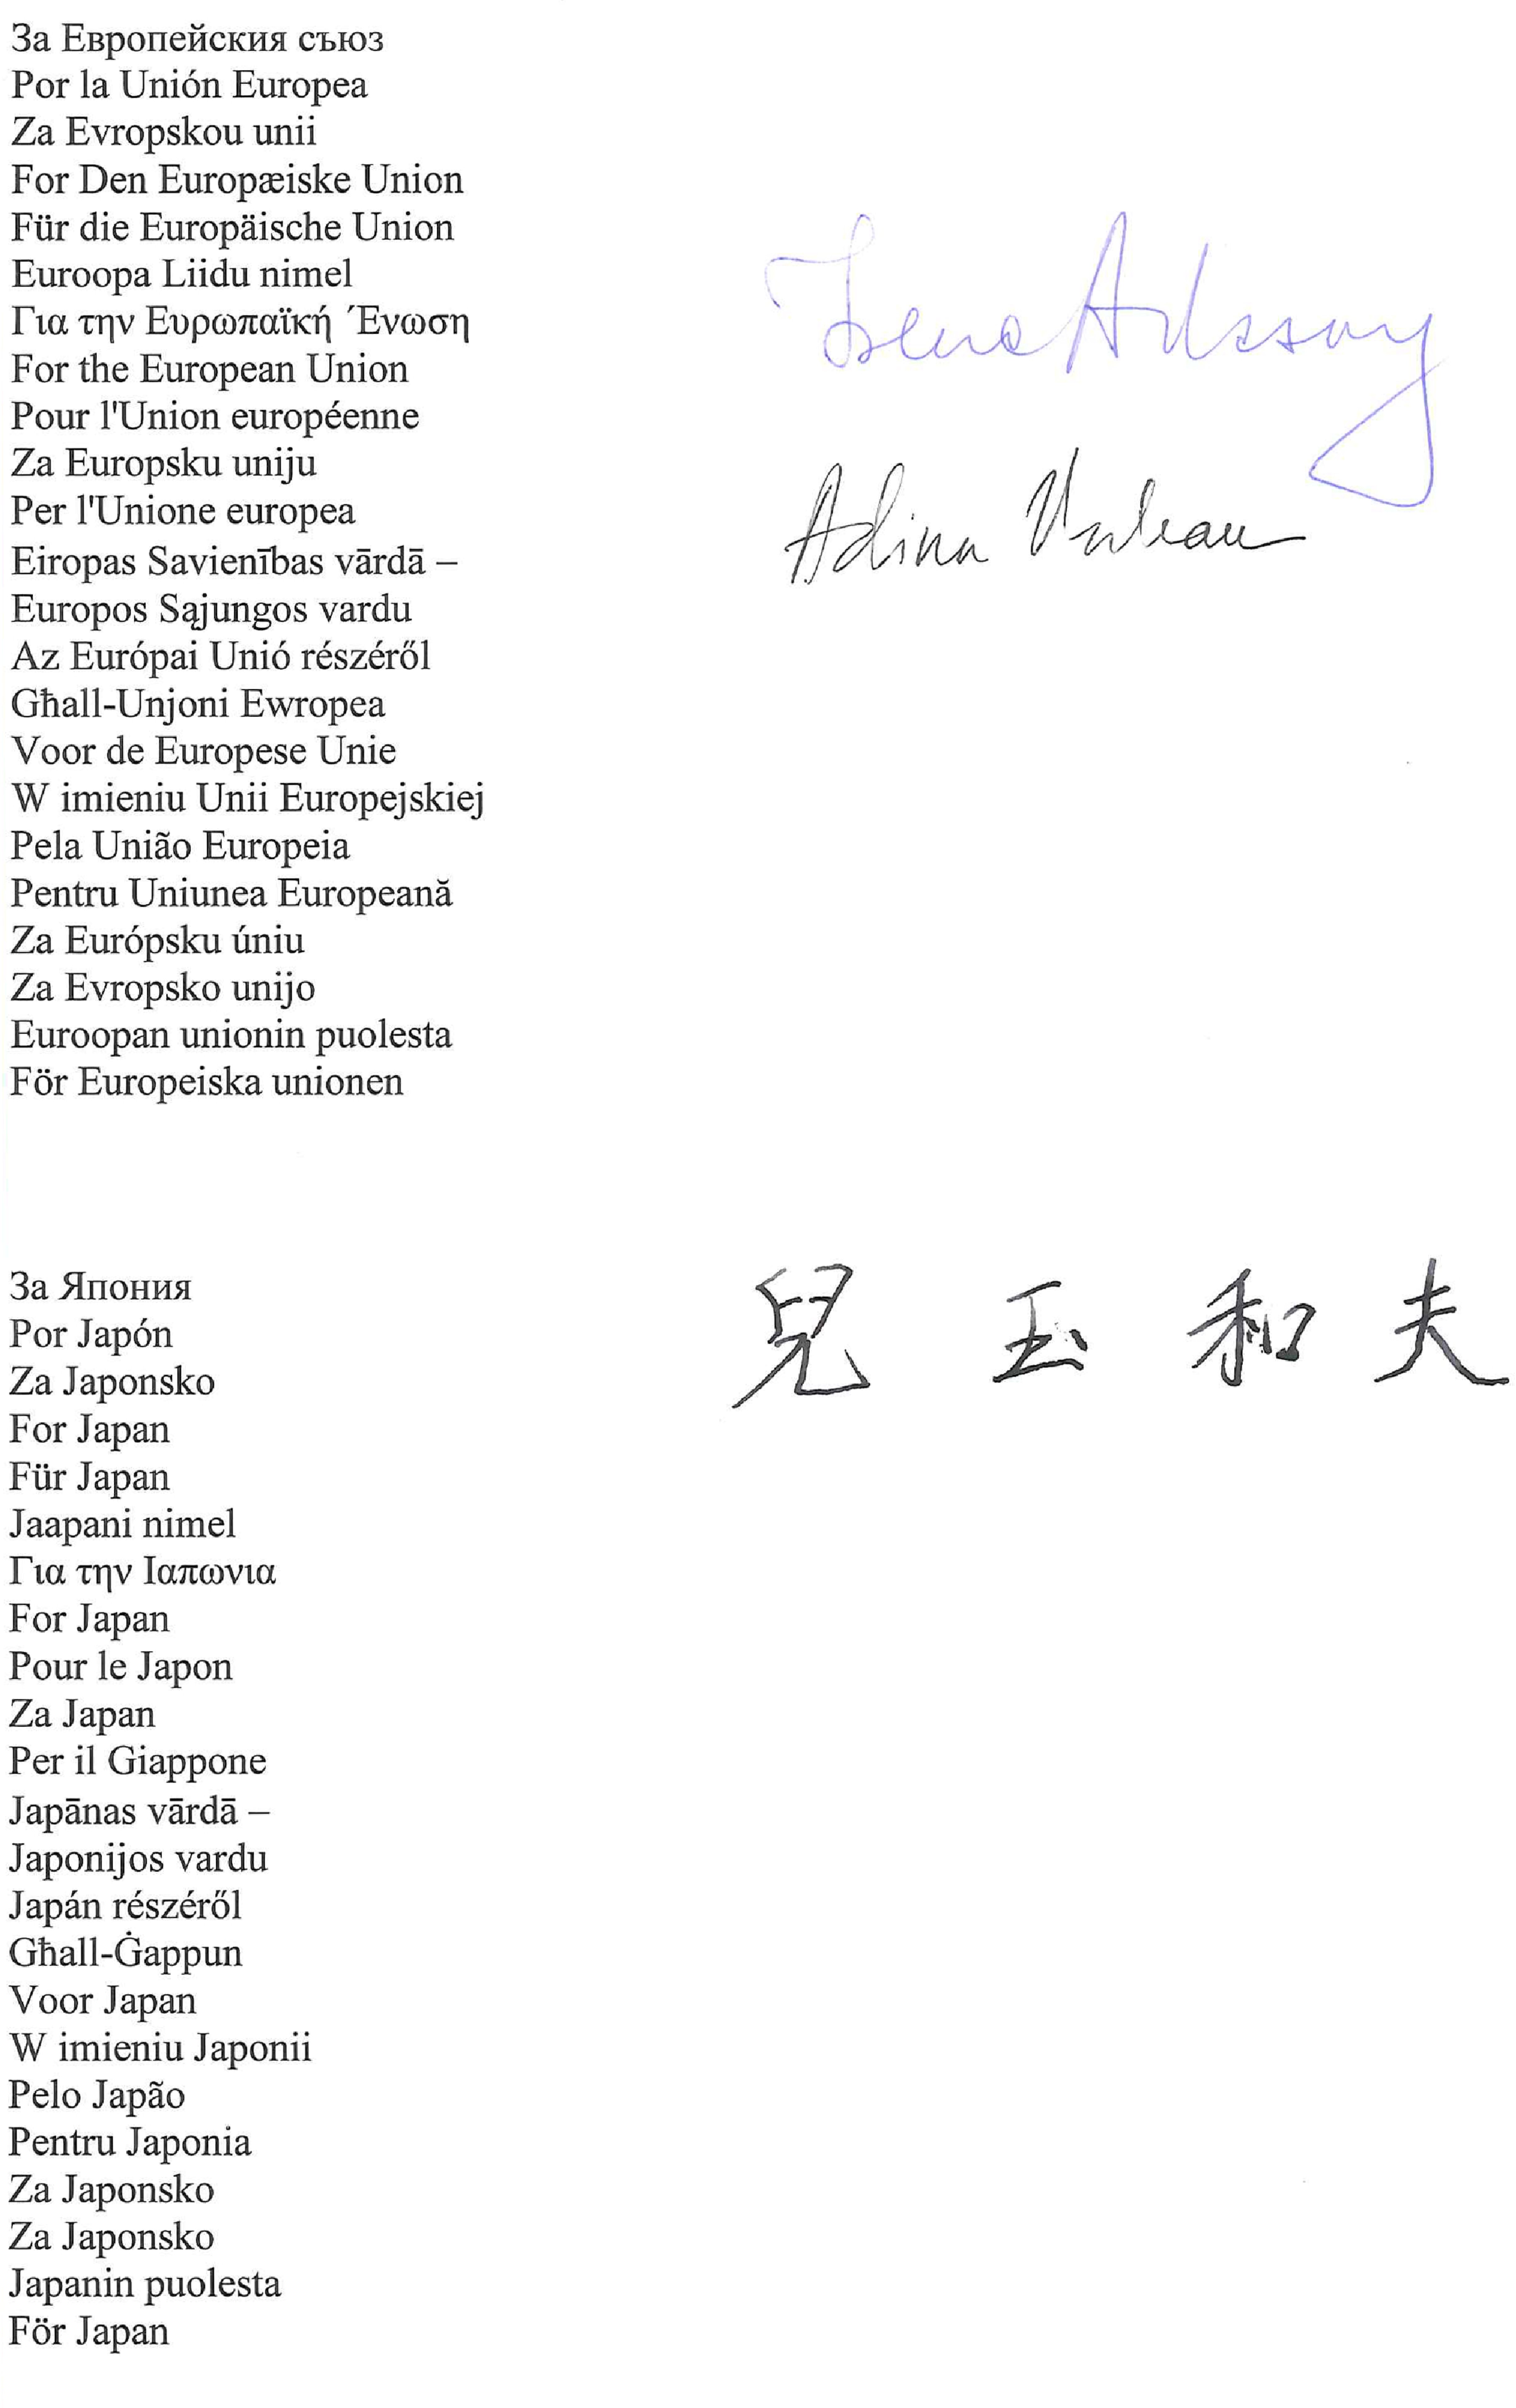 За Европейския съюз
Por la Unión Europea
Za Evropskou unii
For Den Europæiske Union
Für die Europäische Union
Euroopa Liidu nimel
Για την Ευρωπαϊκή Ένωση
For the European Union
Pour l'Union européenne
Za Europsku uniju
Per l'Unione europea
Eiropas Savienības vārdā –
Europos Sąjungos vardu
Az Európai Unió részéről
Għall-Unjoni Ewropea
Voor de Europese Unie
W imieniu Unii Europejskiej
Pela União Europeia
Pentru Uniunea Europeană
Za Európsku úniu
Za Evropsko unijo
Euroopan unionin puolesta
För Europeiska unionen
Adina
За Япония
Por Japón
Za Japonsko
For Japan
Für Japan
Jaapani nimel
Για την Ιαπωνια
For Japan
Pour le Japon
Za Japan
Per il Giappone
Japānas vārdā –
Japonijos vardu
Japán részéről
Għall-Ġappun
Voor Japan
W imieniu Japonii
Pelo Japão
Pentru Japonia
Za Japonsko
Za Japonsko
Japanin puolesta
För Japan
兒玉和夫